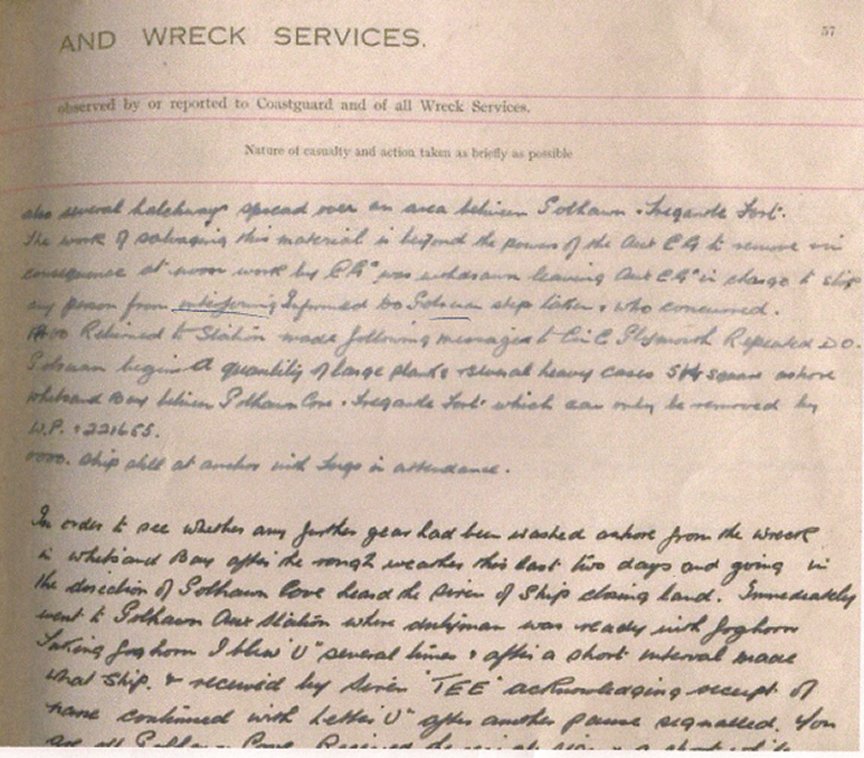 57
AND WRECK SERVICES.
observed by or reported to Coastguard and of all Wreck Services.
Nature of casualty and action taken as briefly as possible
also several hatchways spread over an area between Polhawn & Tregantle Fort.
The work of salvaging this material is beyond the power of the Aux C.G. to remove in
consequence at noon work by C.G.s was withdrawn leaving Aux C.G.s in charge to stop
any person from interfering Informed D.O. Polruan step taken & who concurred.
Returned to Station made following messages to Cin C Plymouth Repeated D.O.
Polruan begins A quantity of large planks & several heavy cases square ashore
Whitsand Bay between Polhawn Cove & Tregantle Fort which can only be removed by
W.P. 221655.
0000. Ship still at anchor with Tugs in attendance.
In order to see whether any further gear had been washed ashore from the wreck
in Whitsand Bay after the rough weather this last two days and going in
the direction of Polhawn Cove heard the siren of Ship closing land. Immediately
went to Polhawn Aux Station where dutyman was ready with foghorn
Taking foghorn I blew "U" several times & after a short interval made
What Ship. & received by siren "TEE" acknowledging receipt of
name continued with Letter "U" after another pause signalled. You
are off Polhawn Cove. Received